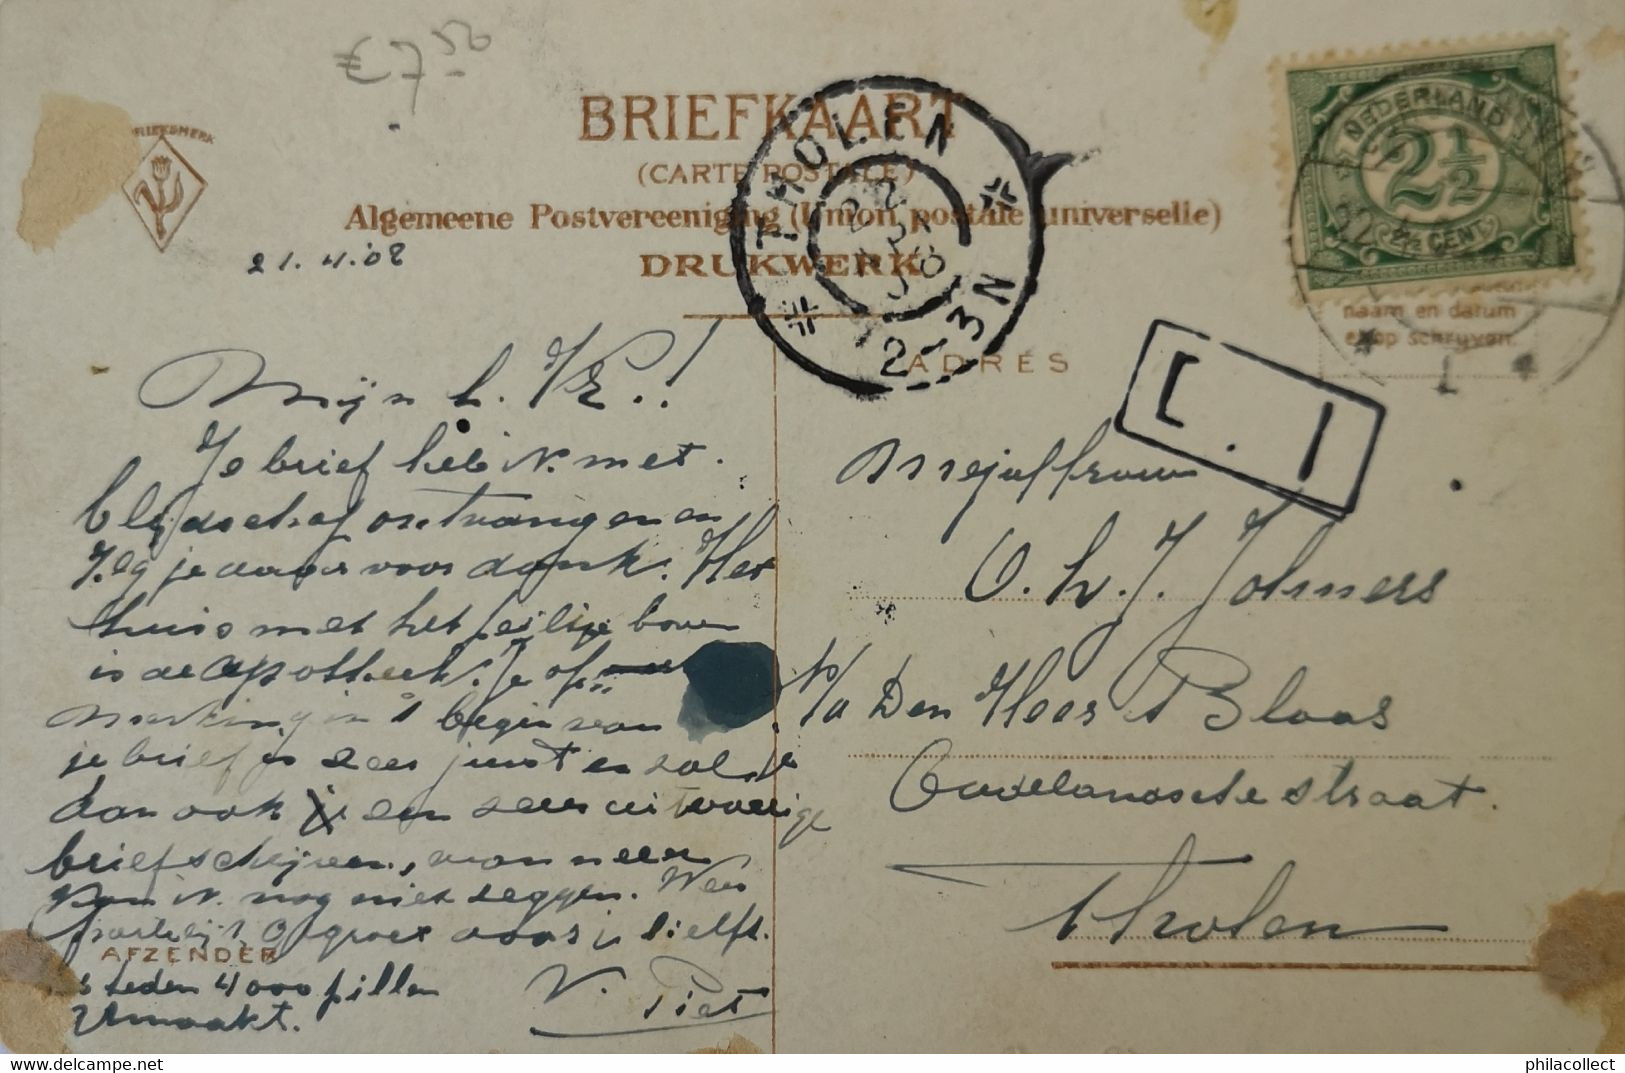 € 7 50
BRIEFKAART
(CARTE POSTALE)
Algemeene Postvereeniging (Union postale universelle)
DRUKWERK
21.4.08
THOLEN
22 APR 08
2-3N
NEDERLAND
2½
2½ CENT
naam en datum
erop schrijven.
ADRES
Mijn L. !
Je brief heb ik met
blijdschap ontvangen en
zeg je daar voor dank. Het
huis met het pijltje boven
is de Apotheek. Je op
merking in 't begin van
je brief is zeer juist en zal je
dan ook een zeer uitvoerige
brief schrijven, wanneer
kan ik nog niet zeggen. Wees
hartelijk gegroet door je liefh.
V. Piet
AFZENDER
heden 4000 pillen
gemaakt.
Mejuffrouw
C. H. J.
P/a Den Heer Blaas
Oudelandschestraat.
Tholen
philacollect